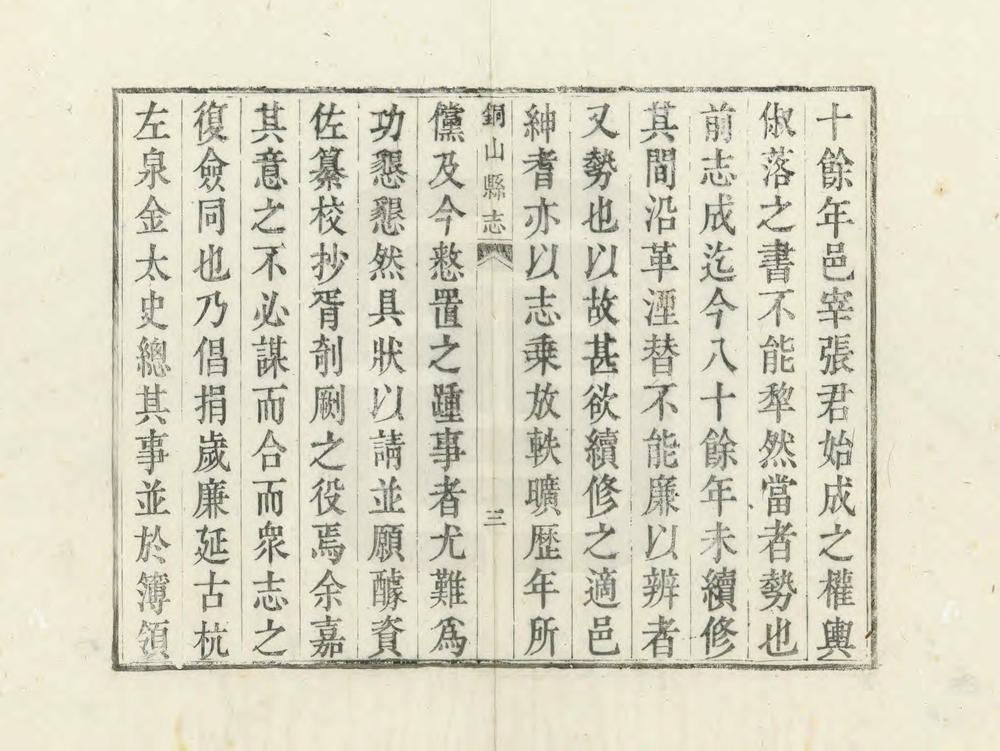 十餘年邑宰張君始成之權輿
俶落之書不能犂然當者勢也
前志成迄今八十餘年未續修
其間沿革湮替不能廉以辨者
又勢也以故甚欲續修之適邑
紳耆亦以志乗放軼曠歴年所
銅山縣志
三
儻及今憗置之踵事者尤難爲
功懇懇然具狀以請並願醵資
佐纂校抄胥剞劂之役焉余嘉
其意之不必謀而合而衆志之
復僉同也乃倡捐歲廉延古杭
左泉金太史總其事並於簿領